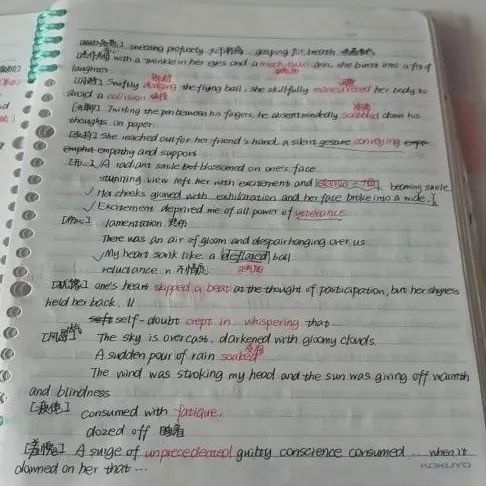 sweating profusely 大汗淋漓, gasping for breath
with a twinkle in her eyes and a mischievous grin, she burst into a fit of
laughter
Swiftly dodging the flying ball, she skillfully maneuvered her body to
avoid a collision
Twirling the pen between his fingers, he absentmindedly scribbled down his
thoughts on paper.
She reached out for her friend's hand, a silent gesture conveying
empathy and support
A radiant smile blossomed on one's face
stunning view left her with excitement and beaming smile
✓ Her cheeks glowed with exhilaration and her face broke into a wide
✓ Excitement deprived me of all power of utterance.
lamentation
There was an air of gloom and despair hanging over us
✓ My heart sank like a deflated ball
reluctance n 不情愿
one's heart skipped a beat at the thought of participation, but her shyness
held her back. 11
self-doubt crept in, whispering that...
The sky is overcast, darkened with gloomy clouds.
A sudden pour of rain soaked
The wind was stroking my head and the sun was giving off warmth
and blindness
[疲倦] consumed with fatigue.
dozed off
A surge of unprecedented guilty conscience consumed ... when it
dawned on her that ...
KOKUYO